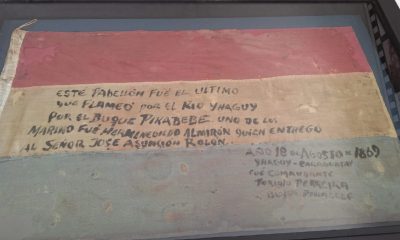 ESTE PABELLÓN FUÉ EL ULTIMO
QUE FLAMEÓ POR EL RIO YHAGUY
POR EL BUQUE PIRABEBE UNO DE LOS
MARINO FUÉ HERMENEGILDO ALMIRÓN QUIEN ENTREGO
AL SEÑOR JOSE ASUNCION ROLON.
AÑO 18 DE AGOSTO DE 1869
YHAGUY - PARAGUAY
FUE COMANDANTE
TORIBIO PEREIRA
BUQUE PIRABEBE